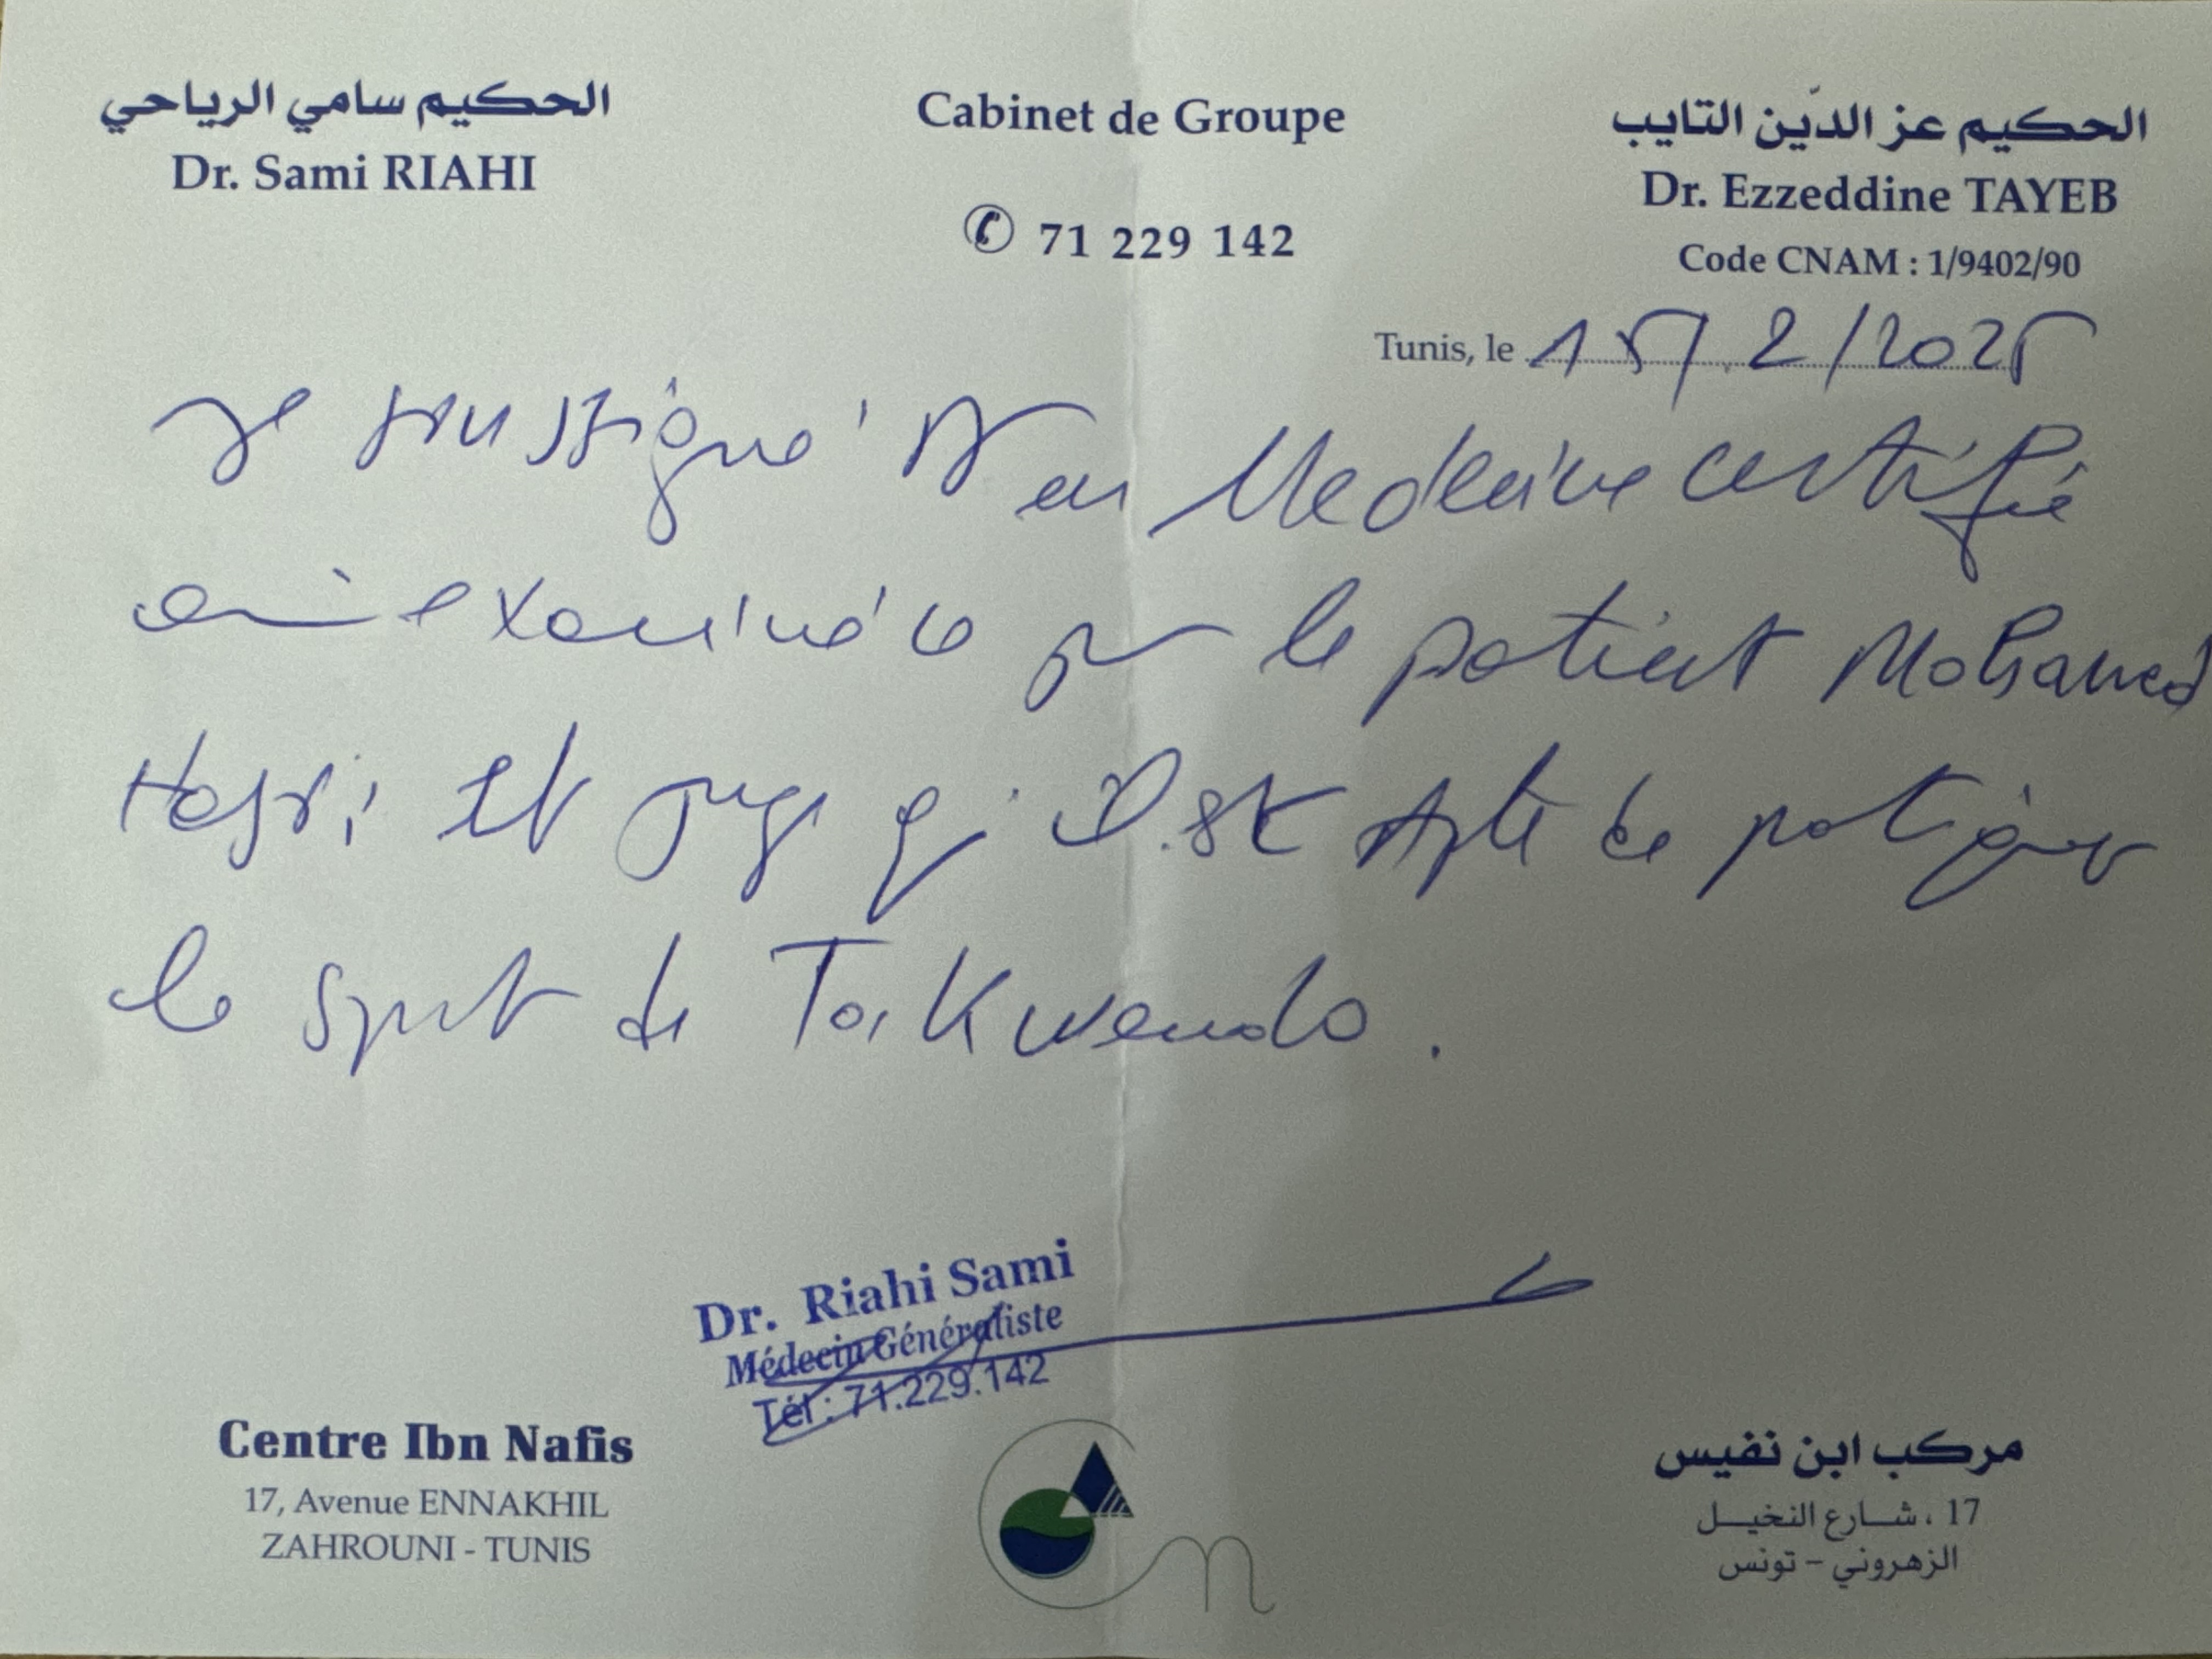 الحكيم سامي الرياحي
Dr. Sami RIAHI
Cabinet de Groupe
✆ 71 229 142
الحكيم عز الدّين التايب
Dr. Ezzeddine TAYEB
Code CNAM : 1/9402/90
Tunis, le 15/2/2025
Je soussigné Dr en Medecine certifié
avoir examiné ce jour le patient Mohamed
et juge qu'il est Apte de pratiquer
le sport de Taikwendo.
Dr. Riahi Sami
Médecin Généraliste
Tél : 71.229.142
Centre Ibn Nafis
17, Avenue ENNAKHIL
ZAHROUNI - TUNIS
مركب ابن نفيس
17 ، شارع النخيل
الزهروني - تونس